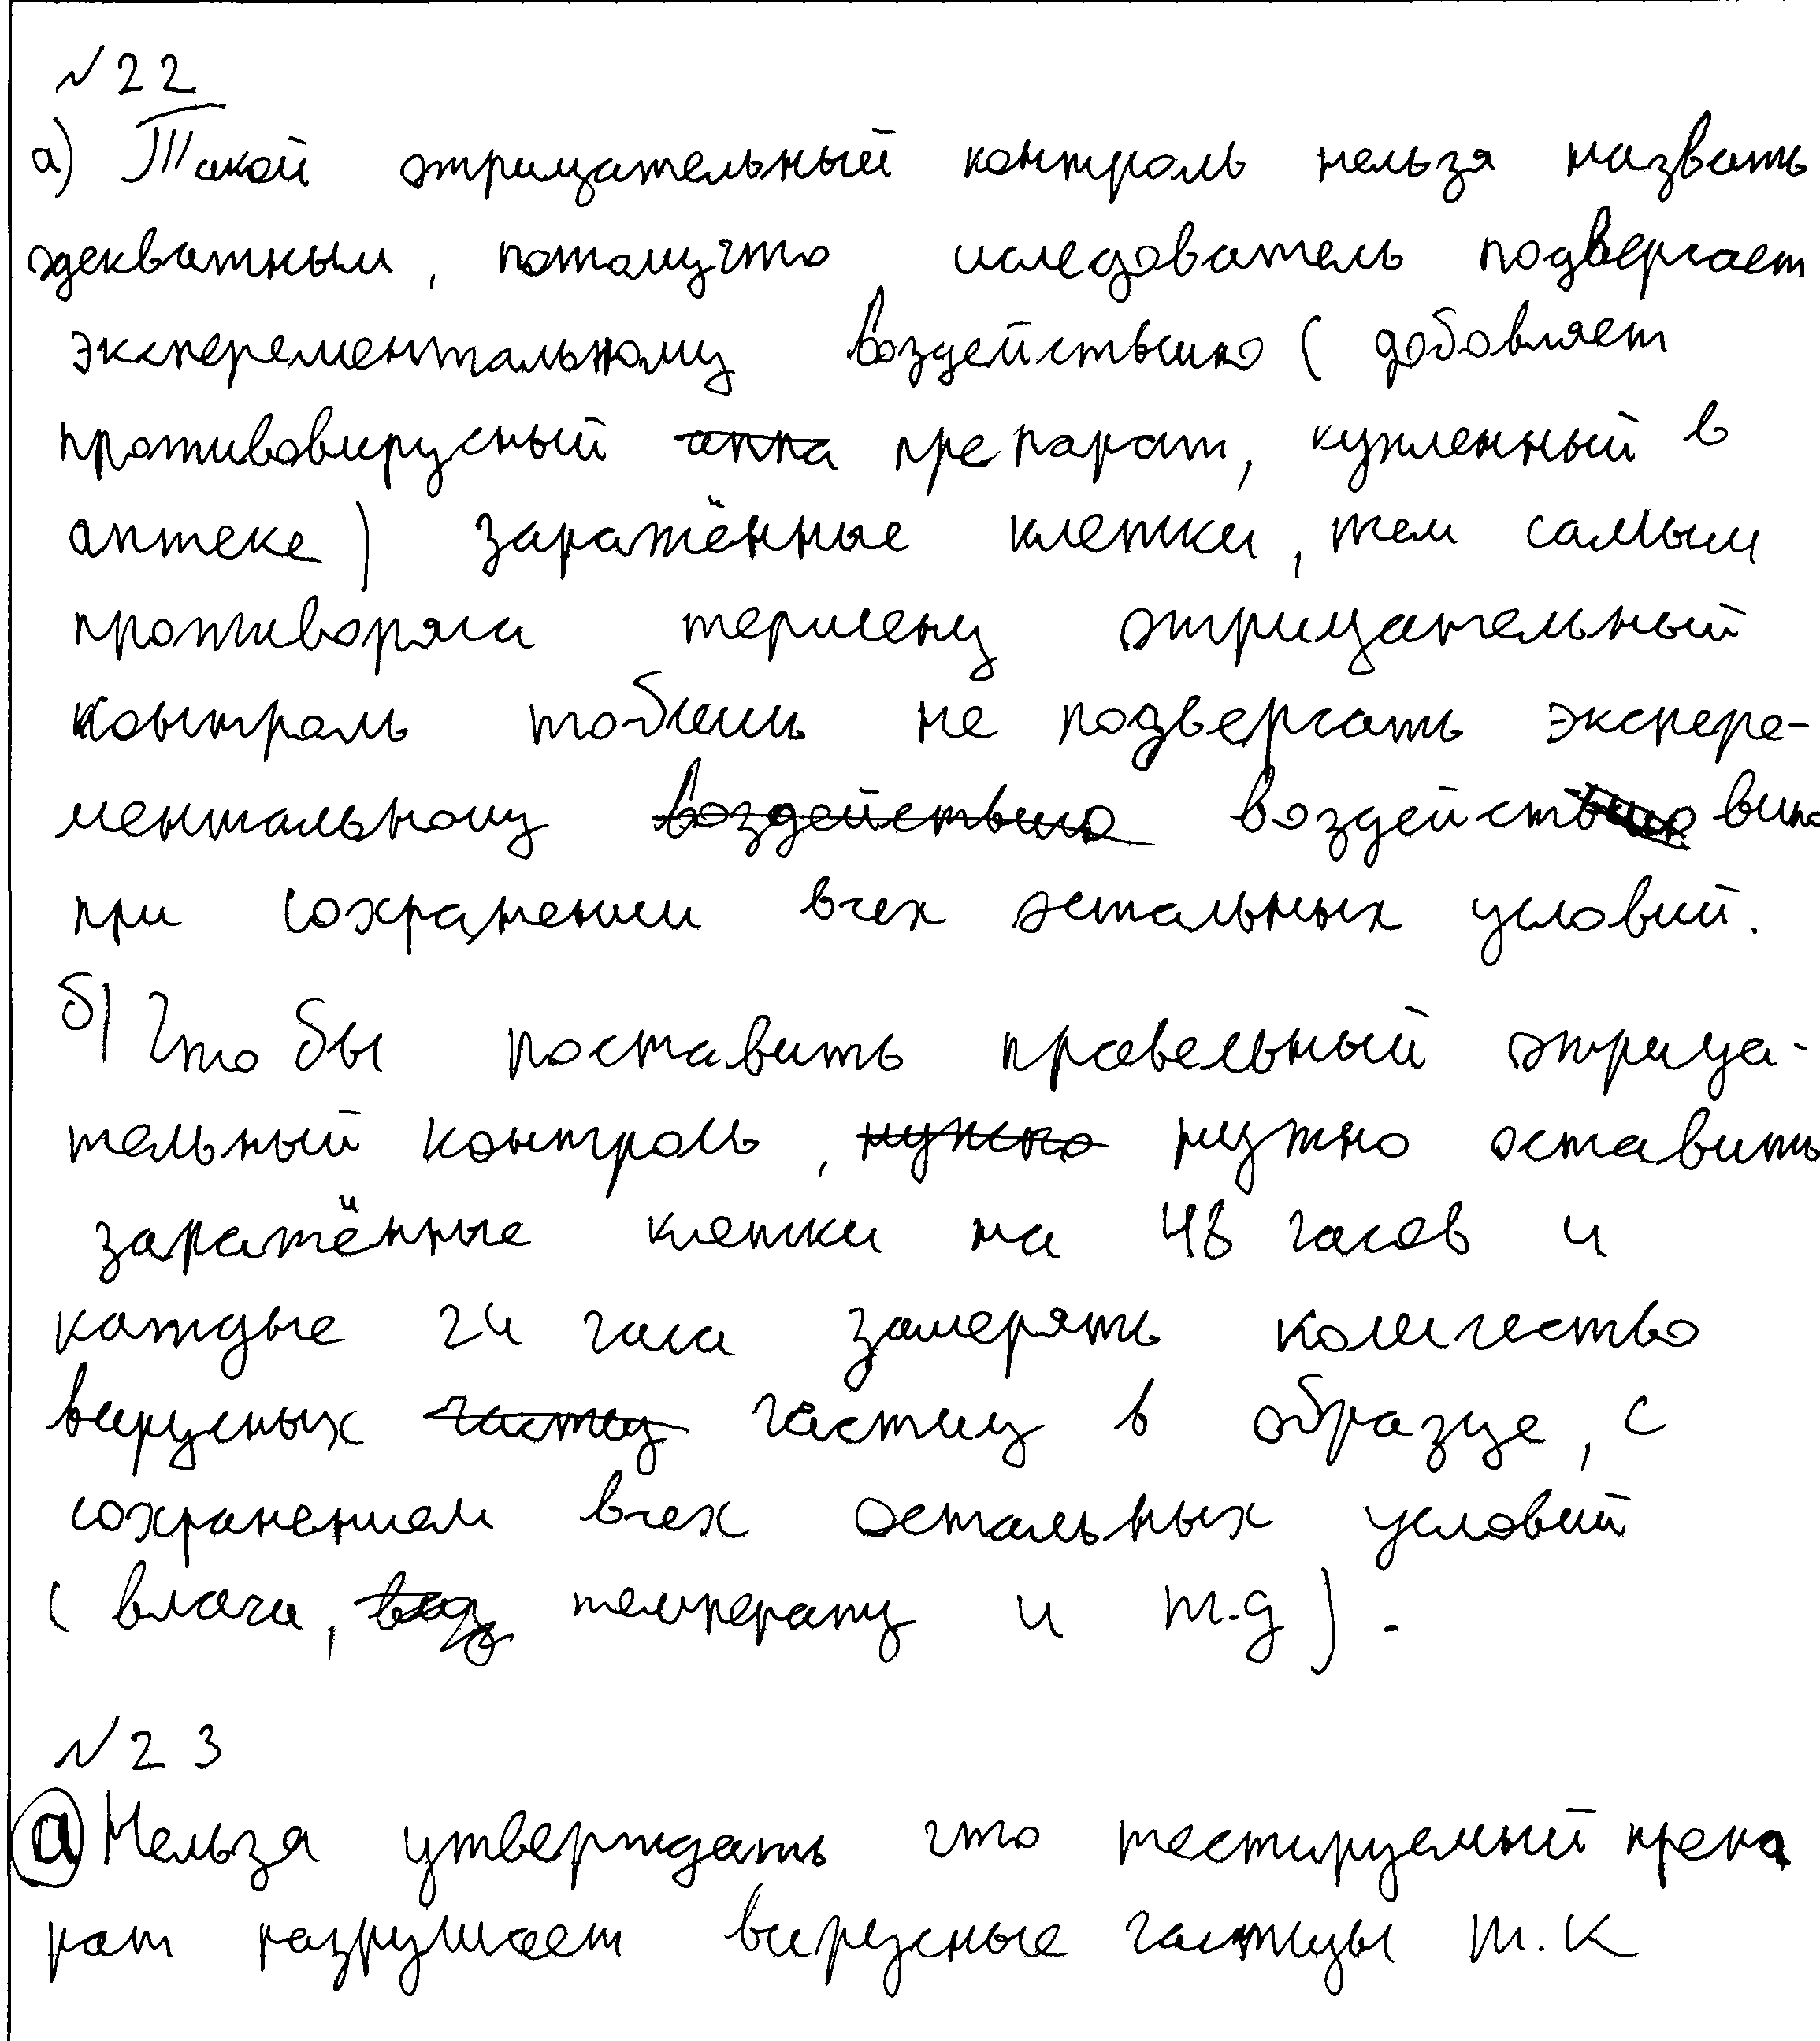 №22
а) Такой отрицательный контроль нельзя назвать
адекватным, потомучто иследователь подвергает
эксперементальному воздействию (добовляет
противовирусный препарат, купленный в
аптеке) заражённые клетки, тем самым
противоряча термену отрицательный
контроль тобишь не подвергать экспере-
ментальному воздействию
при сохранении всех остальных условий.
б) Что бы поставить правельный отрица-
тельный контроль, нужно оставить
заражённые клетки на 48 часов и
каждые 24 часа замерять количество
вирусных частиц в образце, с
сохранением всех остальных условий
(влага, температу и т.д).
№23
а Нельзя утверждать что тестируемый препа
рат разрушает вирусные частицы т.к